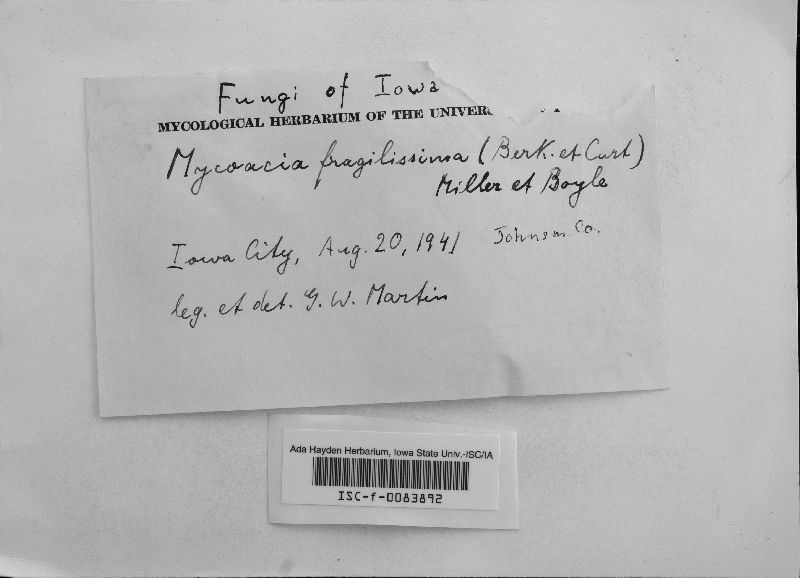 Fungi of Iowa
MYCOLOGICAL HERBARIUM OF THE UNIVER
Mycoacia fragilissima (Berk. et Curt)
Miller et Boyle
Iowa City, Aug. 20, 1941 Johnson Co.
leg. et det. G. W. Martin
Ada Hayden Herbarium, Iowa State Univ.-ISC/IA
ISC-f-0083892